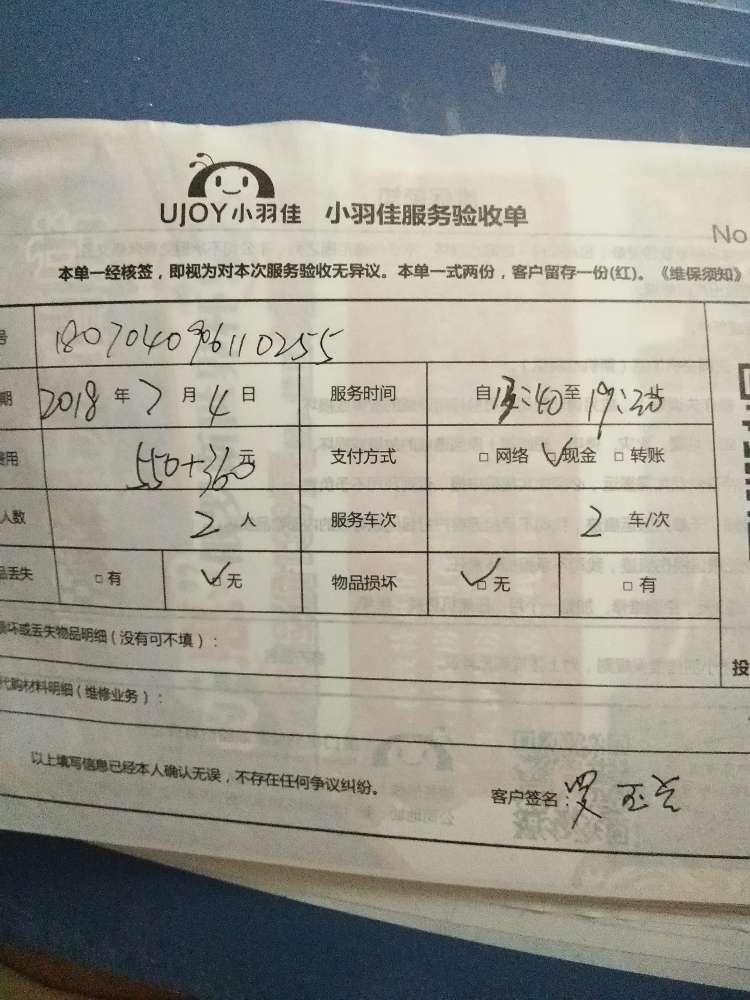 UJOY小羽佳 小羽佳服务验收单
No
本单一经核签，即视为对本次服务验收无异议。本单一式两份，客户留存一份(红)。《维保须知》
号 180704096110255
期 2018 年 7 月 4 日 服务时间 自 :40 至 19:30
费用 550+360 元 支付方式 □ 网络 ☑ 现金 □ 转账
人数 2 人 服务车次 2 车/次
品丢失 □ 有 ☑ 无 物品损坏 ☑ 无 □ 有
损坏或丢失物品明细（没有可不填）：
投
代购材料明细（维修业务）：
以上填写信息已经本人确认无误，不存在任何争议纠纷。
客户签名：罗玉兰